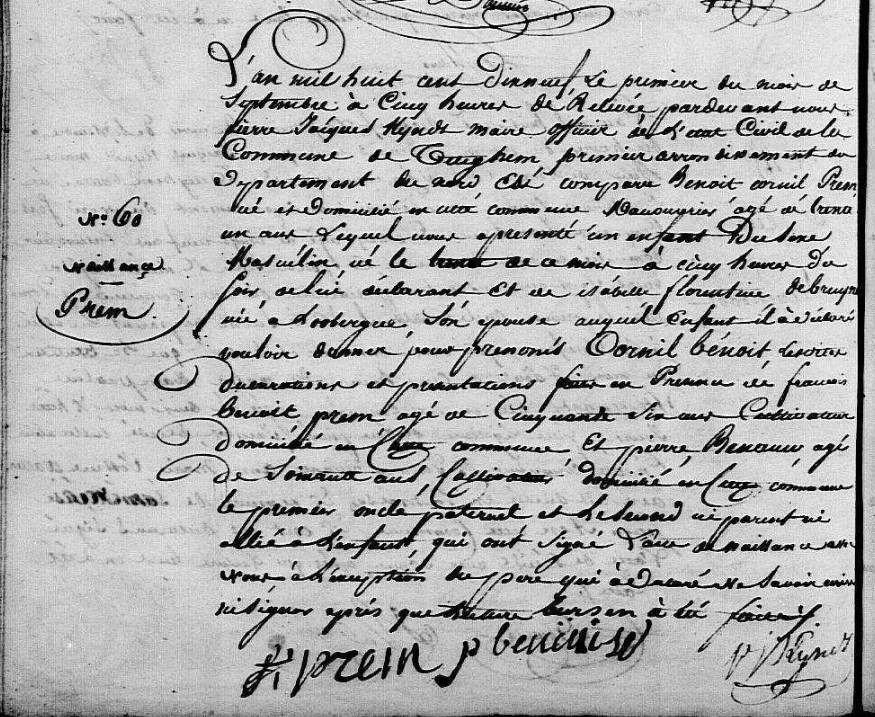 L'an mil huit cent Dixneuf Le premier du mois de
Septembre à Cinq heures de Relevée pardevant nous
pierre Jacques Reyndt maire officier de L'etat Civil de la
Commune de premier arrondissement du
Departement du nord Est comparu Benoit Cornil Prem
né et Domicilié en cette commune Manouvrier agé de trente
un ans Lequel nous a présenté un enfant Du Sexe
Masculin, né le de ce mois à cinq heures du
Soir de lui déclarant Et de isabelle florentine debruyne
née a Looberghe, Son epouse auquel Enfant il à déclaré
vouloir donner pour prenoms Cornil bénoit Lesdites
déclarations et présentations faites en Présence de francois
benoit prem agé de Cinquante Six ans Cultivateur
domicilié en Cette commune Et pierre agé
de Soixante ans, Cultivateur domicilié en Cette commune
le premier oncle paternel et Le Second ni parent ni
allié à L'enfant, qui ont signé L'acte de naissance avec
Nous à L'exception du pere qui à déclaré ne Savoir écrire
ni signer après que Lecture Leur en à été faite
N.º 60
Naissance
Prem
prem p